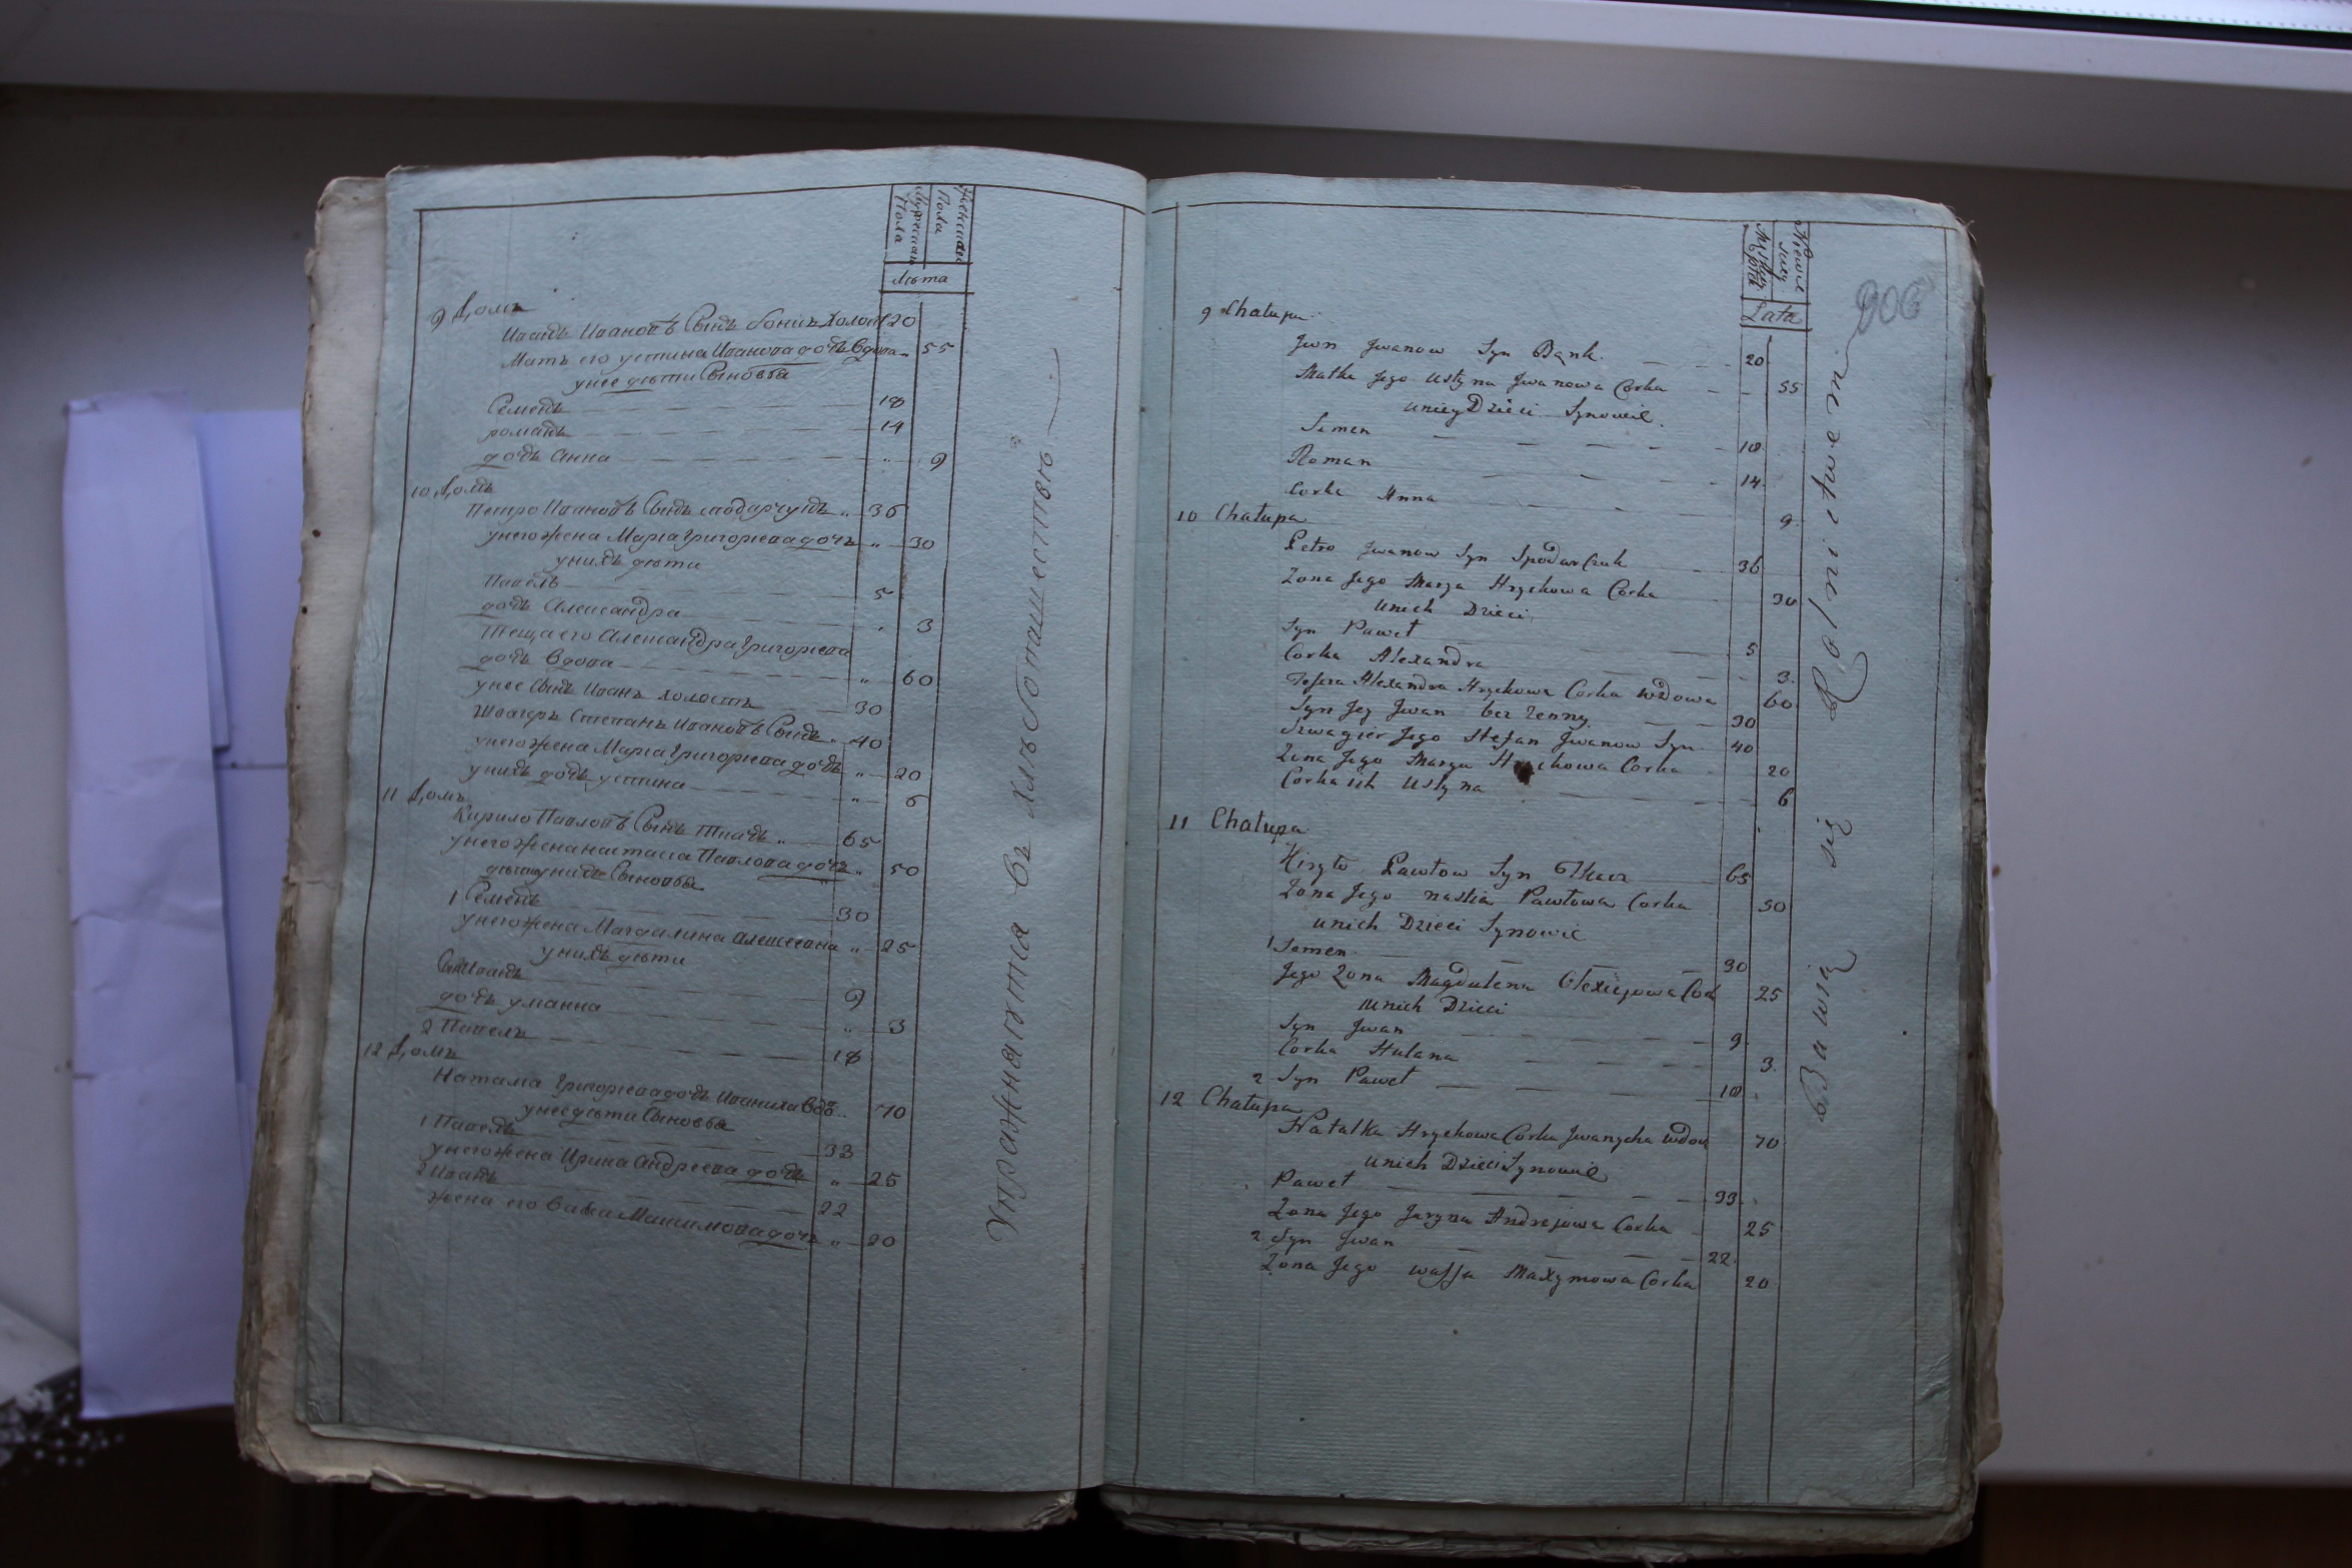 Мужеска Пола
Женска Пола
Лѣта
9 Домъ
Иванъ Ивановъ Сынъ Бонкъ холост 20
Мать его устина Иванова дочь вдова „ 55
унее дѣти Сыновья
Семенъ 18
романъ 14
дочь Анна „ 9
10 Домъ
Петро Ивановъ Сынъ сподарчукъ „ 36
унегожена Марiа Григорьева дочь „ 30
унихъ дѣти
Павелъ 5
дочь Александра „ 3
Теща его Александра Григорьева
дочь вдова „ 60
унее Сынъ Иванъ холостъ 30
Швагеръ Степанъ Ивановъ Сынъ „ 40
унегожена Марiа Григорьева дочь „ 20
унихъ дочь устина „ 6
11 Домъ
Кирило Павловъ Сынъ Ткачъ „ 65
унегожена настасiа Павлова дочь „ 50
дѣти унихъ Сыновья
1 Семенъ 30
унегожена Магдалина алексеева „ 25
унихъ дѣти
Сынъ Иванъ 9
дочь улианна „ 3
2 Павелъ 18
12 Домъ
Наталiа Григорьева дочь Иваниха Вдо. 70
унее дѣти Сыновья
1 Павелъ 33
унегожена Ирина Андреева дочь „ 25
2 Иванъ 22
жена его Васса Максимова дочь „ 20
Упражняются въ хлѣбопашествѣ
206
Lata
9 Chałupa
Jwn Jwanow Syn Bąnk 20
Matka Jego Ustyna Jwanowa Corka 55
uniey Dzieci Synowie
Semen 18
Roman 14
Corka Anna 9
10 Chałupa
Petro Jwanow Syn Spodarczuk 36
Zona Jego Marya Hryckowa Corka 30
Unich Dzieci
Syn Paweł 5
Corka Alexandra 3
Tescza Alexandra Hryckowa Corka wdowa 60
Syn Jey Jwan bez zenny 30
Szwagier Jego Stefan Jwanow Syn 40
Zona Jego Marya Hryckowa Corka 20
Corka ich Ustyna 6
11 Chałupa
Kiryło Pawłow Syn Tkacz 65
Zona Jego nastia Pawłowa Corka 50
unich Dzieci Synowie
1 Semen 30
Jego Zona Magdalena Olexiejowa Cor 25
unich Dzieci
Syn Jwan 9
Corka Hulana 3
2 Syn Paweł 18
12 Chałupa
Natalka Hryckowa Corka Jwanycha wdow 70
unich Dzieci Synowie
Paweł 33
Zona Jego Jaryna Andrejowa Corka 25
2 Syn Jwan 22
Zona Jego wassa Maxymowa Corka 20
Bawią się Rolnictwem